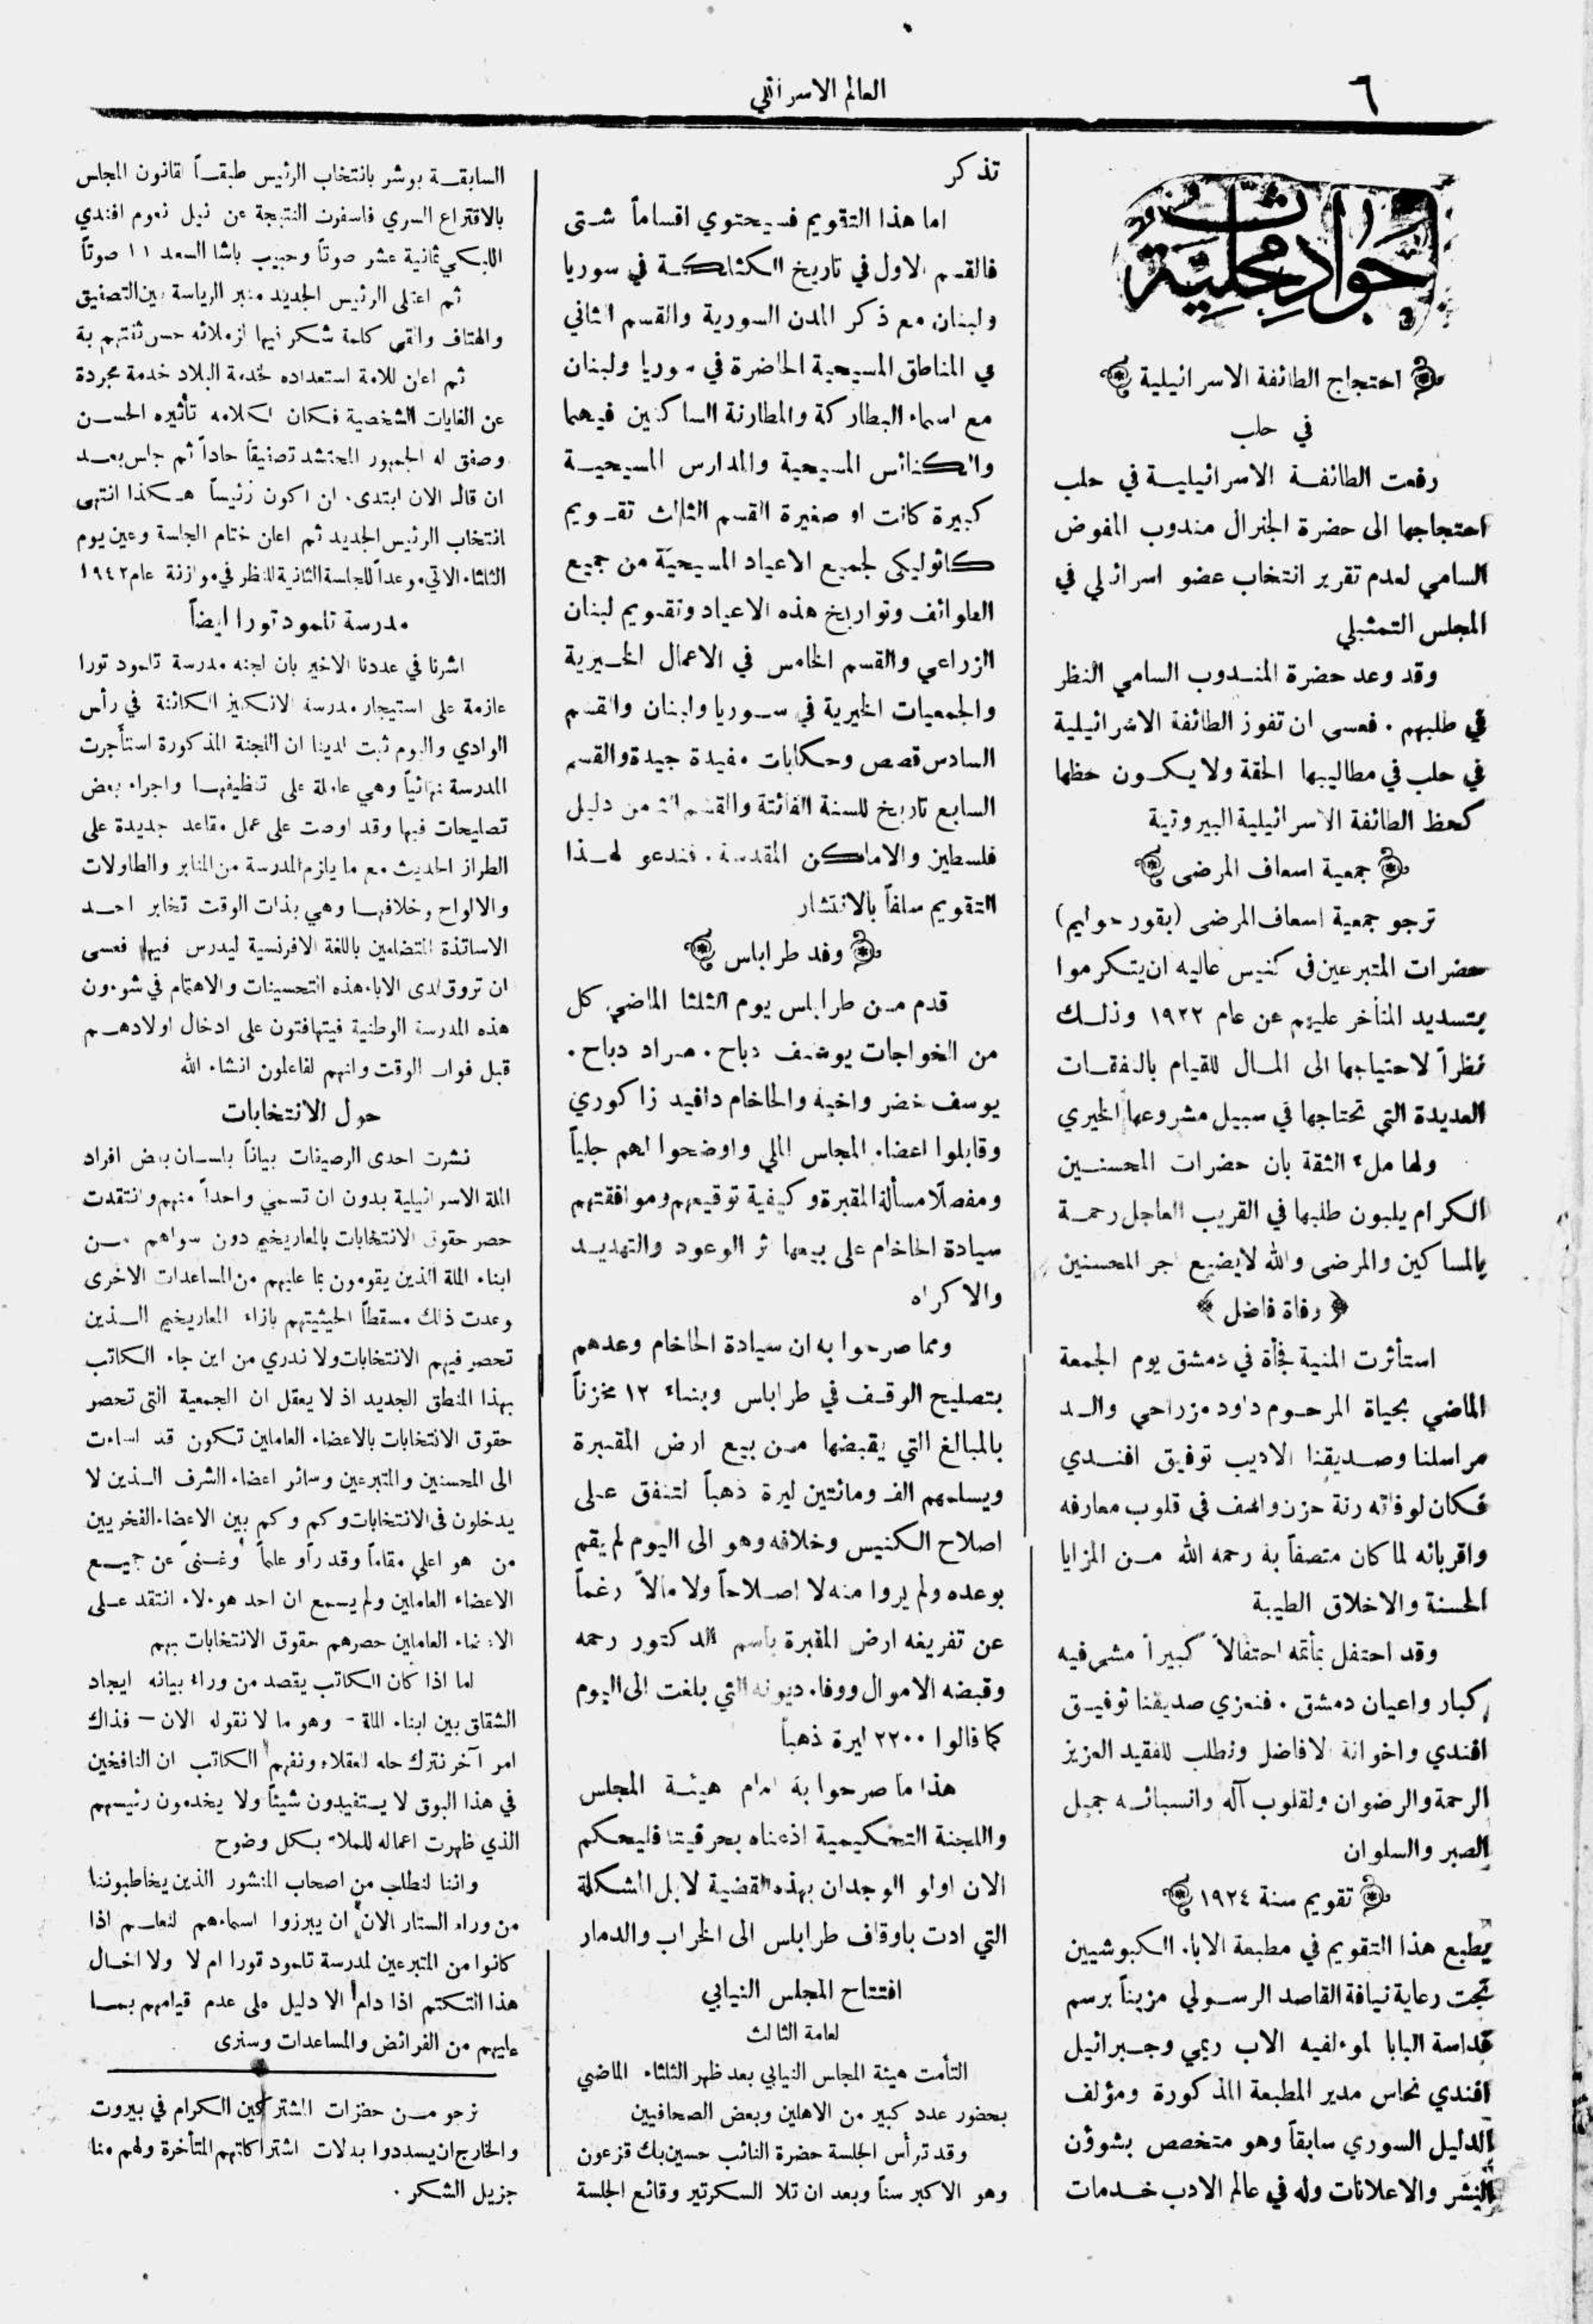 ٦
العالم الاسرائلي
حوادث محلية
احتجاج الطائفة الاسرائيلية
في حلب
رفعت الطائفة الاسرائيلية في حلب
احتجاجها الى حضرة الجنرال مندوب المفوض
السامي لعدم تقرير انتخاب عضو اسرائلي في
المجلس التمثيلي
وقد وعد حضرة المندوب السامي النظر
في طلبهم . فعسى ان تفوز الطائفة الاسرائيلية
في حلب في مطاليبها الحقة ولا يكون حظها
كحظ الطائفة الاسرائيلية البيروتية
جمعية اسعاف المرضى
ترجو جمعية اسعاف المرضى (بقور حوليم)
حضرات المتبرعين في كنيس عاليه ان يتكرموا
بتسديد المتأخر عليهم عن عام ١٩٢٢ وذلك
نظراً لاحتياجها الى المال للقيام بالنفقات
العديدة التي تحتاجها في سبيل مشروعها الخيري
ولها ملء الثقة بان حضرات المحسنين
الكرام يلبون طلبها في القريب العاجل رحمة
بالمساكين والمرضى والله لا يضيع اجر المحسنين
﴿ وفاة فاضل ﴾
استأثرت المنية فجأة في دمشق يوم الجمعة
الماضي بحياة المرحوم داود مزراحي والد
مراسلنا وصديقنا الاديب توفيق افندي
فكان لوفاته رنة حزن واسف في قلوب معارفه
واقربائه لما كان متصفاً به رحمه الله من المزايا
الحسنة والاخلاق الطيبة
وقد احتفل بمأتمه احتفالاً كبيراً مشى فيه
كبار واعيان دمشق . فنعزي صديقنا توفيق
افندي واخوانه الافاضل ونطلب للفقيد العزيز
الرحمة والرضوان ولقلوب آله وانسبائه جميل
الصبر والسلوان
تقويم سنة ١٩٢٤
يطبع هذا التقويم في مطبعة الاباء الكبوشيين
تحت رعاية نيافة القاصد الرسولي مزيناً برسم
قداسة البابا لموءلفيه الاب ريمي وجبرائيل
افندي نحاس مدير المطبعة المذكورة ومؤلف
الدليل السوري سابقاً وهو متخصص بشوؤن
النشر والاعلانات وله في عالم الادب خدمات
تذكر
اما هذا التقويم فسيحتوي اقساماً شتى
فالقسم الاول في تاريخ الكثلكة في سوريا
ولبنان مع ذكر المدن السورية والقسم الثاني
في المناطق المسيحية الحاضرة في سوريا ولبنان
مع اسماء البطاركة والمطارنة الساكنين فيهما
والكنائس المسيحية والمدارس المسيحية
كبيرة كانت او صغيرة القسم الثالث تقويم
كاثوليكى لجميع الاعياد المسيحية من جميع
الطوائف وتواريخ هذه الاعياد وتقويم لبنان
الزراعي والقسم الخامس في الاعمال الخيرية
والجمعيات الخيرية في سوريا ولبنان والقسم
السادس قصص وحكايات مفيدة جيدة والقسم
السابع تاريخ للسنة الفائتة والقسم الثامن دليل
فلسطين والاماكن المقدسة . فندعو لهذا
التقويم سلفاً بالانتشار
وفد طرابلس
قدم من طرابلس يوم الثلثا الماضي كل
من الخواجات يوسف دباح . مراد دباح .
يوسف خضر واخيه والحاخام دافيد زاكوري
وقابلوا اعضاء المجلس الملي واوضحوا لهم جلياً
ومفصلاً مسألة المقبرة وكيفية توقيعهم وموافقتهم
سيادة الحاخام على بيعها اثر الوعود والتهديد
والاكراه
ومما صرحوا به ان سيادة الحاخام وعدهم
بتصليح الوقف في طرابلس وبناء ١٢ مخزناً
بالمبالغ التي يقبضها من بيع ارض المقبرة
ويسلمهم الف ومائتين ليرة ذهباً لتنفق على
اصلاح الكنيس وخلافه وهو الى اليوم لم يقم
بوعده ولم يروا منه لا اصلاحاً ولا مالاً رغماً
عن تفريغه ارض المقبرة باسم الدكتور رحمه
وقبضه الاموال ووفاء ديونه التي بلغت الى اليوم
كما قالوا ٢٢٠٠ ليرة ذهباً
هذا ما صرحوا به امام هيئة المجلس
واللجنة التحكيمية اذعناه بحرفيته فليحكم
الان اولو الوجدان بهذه القضية لا بل المشكلة
التي ادت باوقاف طرابلس الى الخراب والدمار
افتتاح المجلس النيابي
لعامة الثالث
التأمت هيئة المجلس النيابي بعد ظهر الثلثاء الماضي
بحضور عدد كبير من الاهلين وبعض الصحافيين
وقد ترأس الجلسة حضرة النائب حسين بك قزعون
وهو الاكبر سناً وبعد ان تلا السكرتير وقائع الجلسة
السابقة بوشر بانتخاب الرئيس طبقاً لقانون المجلس
بالاقتراع السري فاسفرت النتيجة عن نيل نعوم افندي
اللبكي ثمانية عشر صوتاً وحبيب باشا السعد ١١ صوتاً
ثم اعتلى الرئيس الجديد منبر الرياسة بين التصفيق
والهتاف والقى كلمة شكر فيها لزملائه حسن ثقتهم به
ثم اعلن للامة استعداده لخدمة البلاد خدمة مجردة
عن الغايات الشخصية فكان لكلامه تأثيره الحسن
وصفق له الجمهور المحتشد تصفيقاً حاداً ثم جلس بعد
ان قال الان ابتدى. ان اكون رئيساً هكذا انتهى
انتخاب الرئيس الجديد ثم اعلن ختام الجلسة وعين يوم
الثلثاء الاتي موعداً للجلسة الثانية للنظر في موازنة عام ١٩٤٢
مدرسة تلمود تورا ايضاً
اشرنا في عددنا الاخير بان لجنه مدرسة تلمود تورا
عازمة على استيجار مدرسة الانكليز الكائنة في رأس
الوادي واليوم ثبت لدينا ان اللجنة المذكورة استأجرت
المدرسة نهائياً وهي عاملة على تنظيفها واجراء بعض
تصليحات فيها وقد اوصت على عمل مقاعد جديدة على
الطراز الحديث مع ما يلزم المدرسة من المنابر والطاولات
والالواح وخلافها وهي بذات الوقت تخابر احد
الاساتذة المتضلعين باللغة الافرنسية ليدرس فيها فعسى
ان تروق لدى الاباء هذه التحسينات والاهتمام في شوءون
هذه المدرسة الوطنية فيتهافتون على ادخال اولادهم
قبل فوات الوقت وانهم لفاعلون انشاء الله
حول الانتخابات
نشرت احدى الرصيفات بياناً بلسان بعض افراد
الملة الاسرائيلية بدون ان تسمي واحداً منهم وانتقدت
حصر حقوق الانتخابات بالمعاريخيم دون سواهم من
ابناء الملة الذين يقومون بما عليهم من المساعدات الاخرى
وعدت ذلك مسقطاً لحيثيتهم بازاء المعاريخيم الذين
تحصر فيهم الانتخابات ولا ندري من اين جاء الكاتب
بهذا المنطق الجديد اذ لا يعقل ان الجمعية التى تحصر
حقوق الانتخابات بالاعضاء العاملين تكون قد اساءت
الى المحسنين والمتبرعين وسائر اعضاء الشرف الذين لا
يدخلون فى الانتخابات وكم وكم بين الاعضاء الفخريين
من هو اعلى مقاماً وقدراً وعلماً وغنىً عن جميع
الاعضاء العاملين ولم يسمع ان احد هوءلاء انتقد على
الاعضاء العاملين حصرهم حقوق الانتخابات بهم
اما اذا كان الكاتب يقصد من وراء بيانه ايجاد
الشقاق بين ابناء الملة - وهو ما لا نقوله الان – فذاك
امر آخر نترك حله للعقلاء ونفهم الكاتب ان النافخين
في هذا البوق لا يستفيدون شيئاً ولا يخدمون رئيسهم
الذي ظهرت اعماله للملاء بكل وضوح
واننا لنطلب من اصحاب المنشور الذين يخاطبوننا
من وراء الستار الان ان يبرزوا اسماءهم لنعلم اذا
كانوا من المتبرعين لمدرسة تلمود تورا ام لا ولا اخال
هذا التكتم اذا دام الا دليل على عدم قيامهم بما
عليهم من الفرائض والمساعدات وسنرى
نرجو من حضرات المشتركين الكرام في بيروت
والخارج ان يسددوا بدلات اشتراكاتهم المتأخرة ولهم منا
جزيل الشكر .